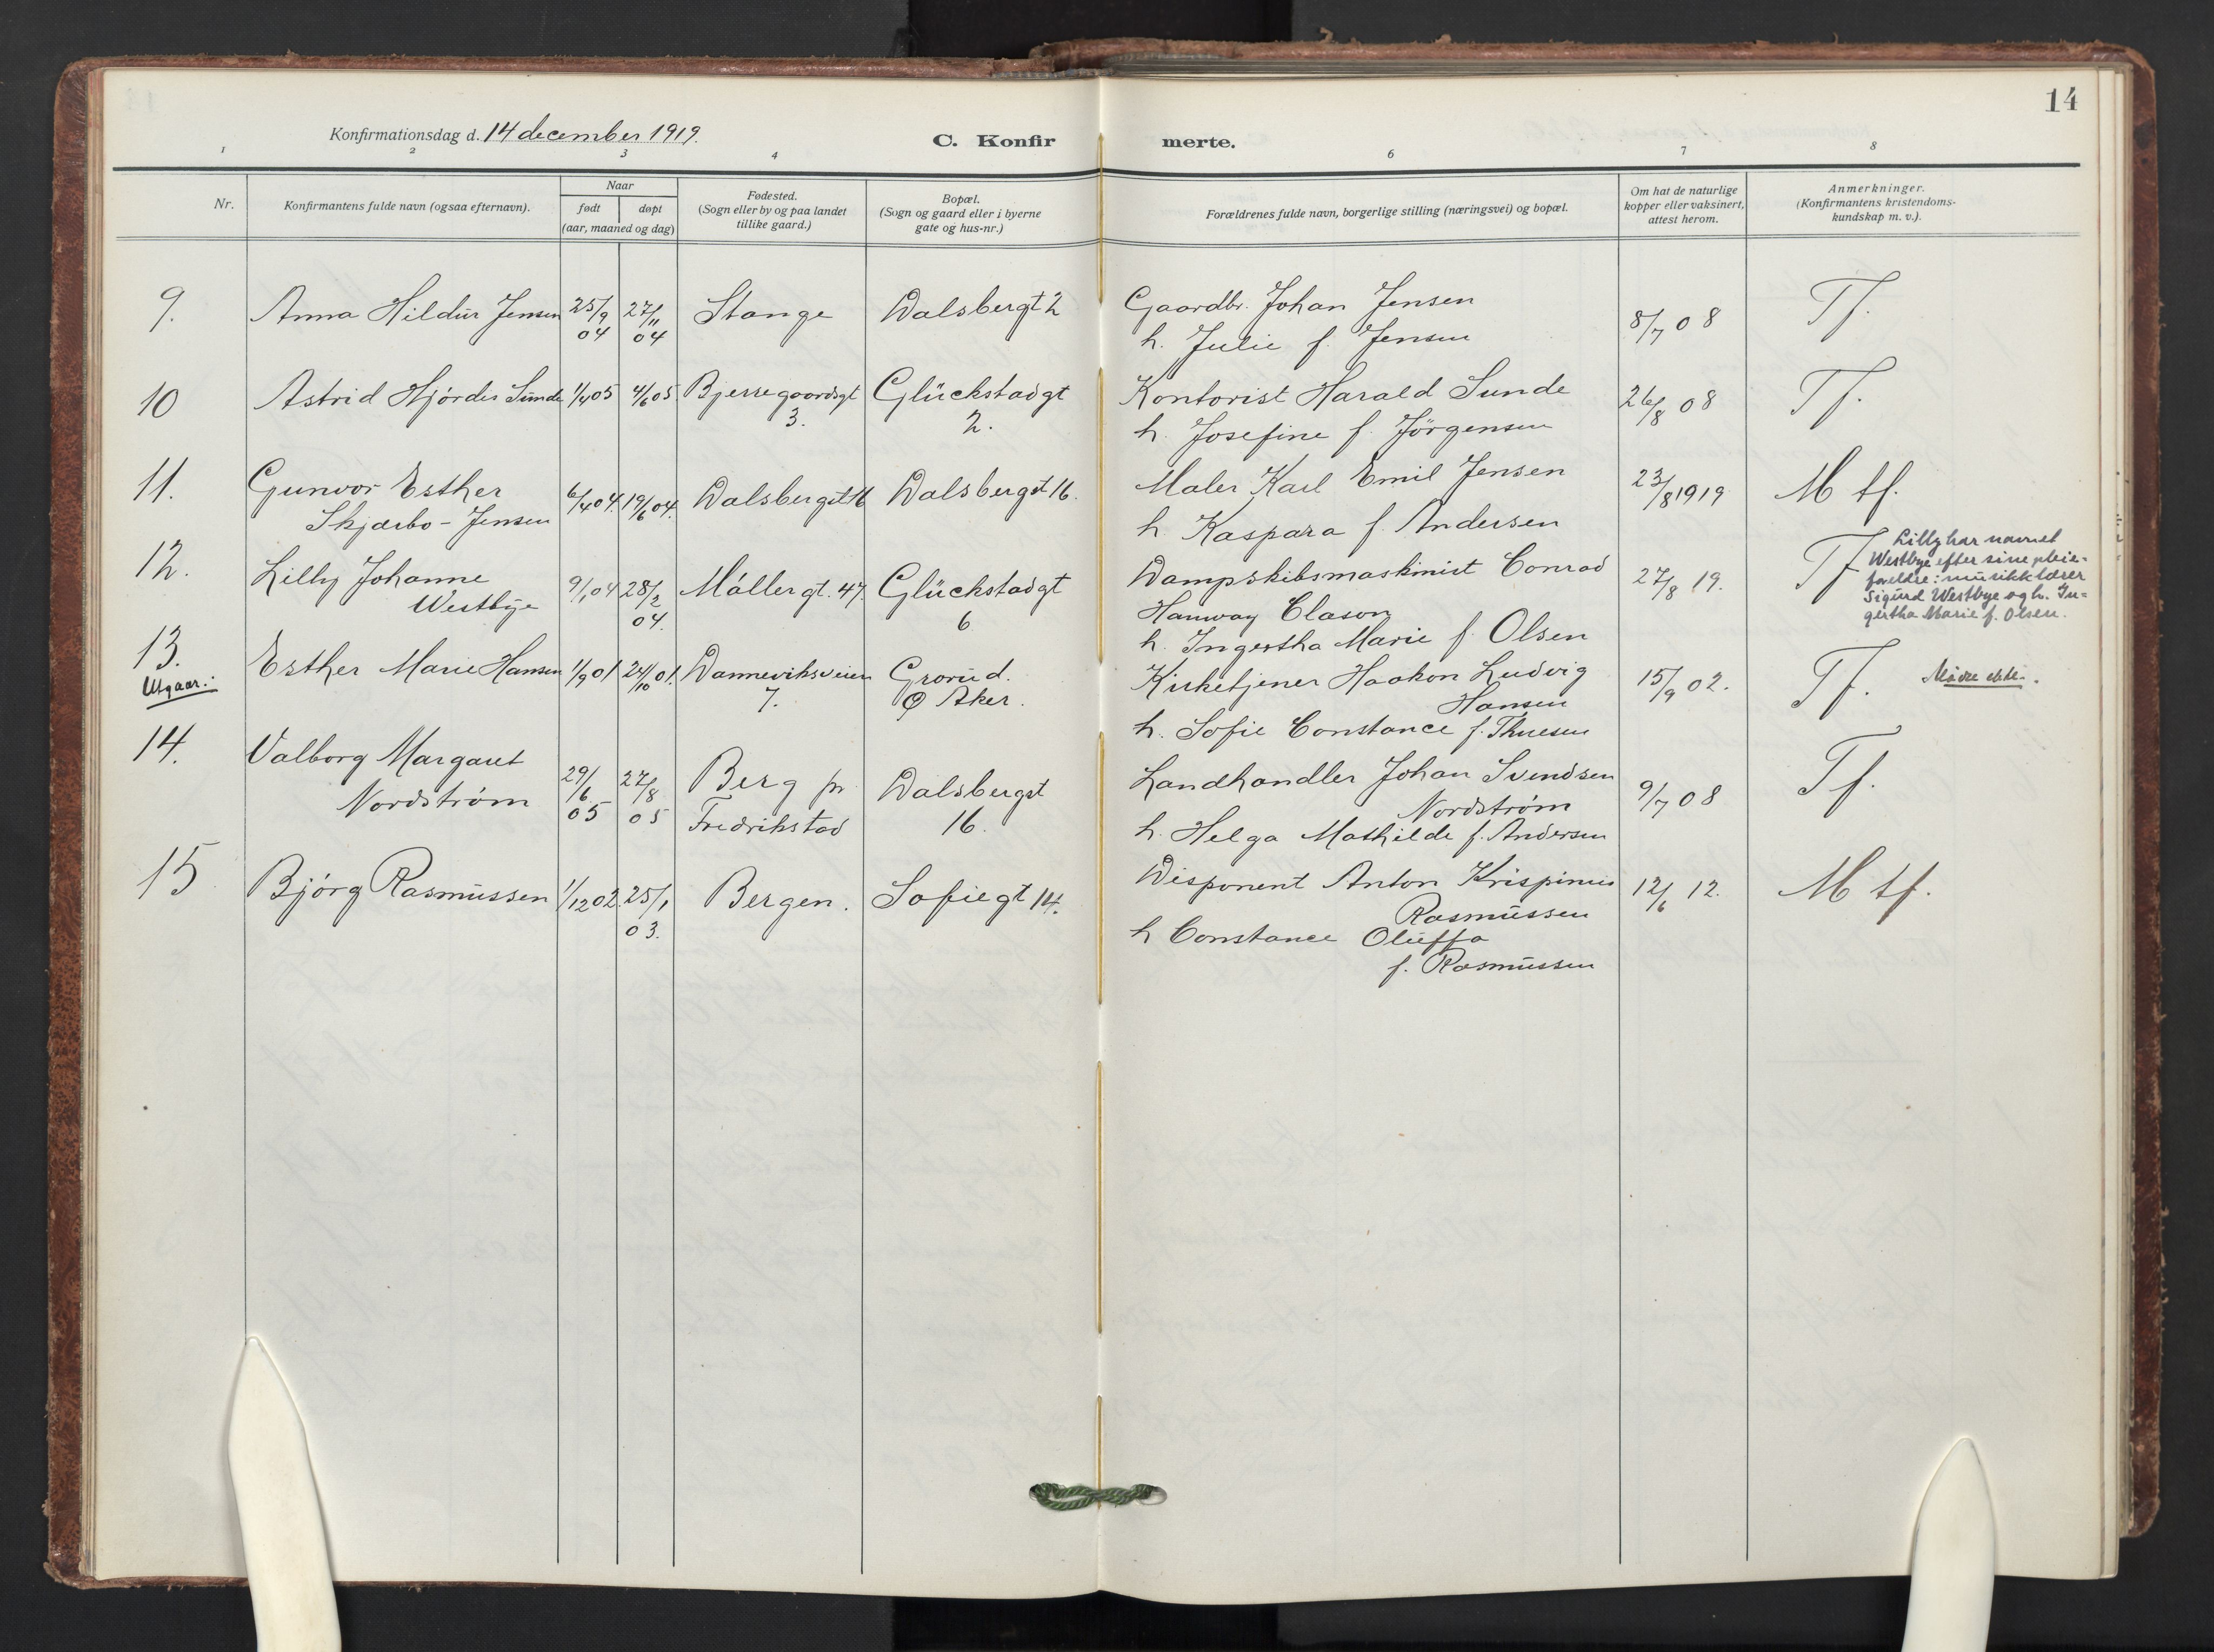 14
Konfirmationsdag d. 14 december 1919.
C. Konfirmerte.
1 2 3 4 6 7 8
Nr.
Konfirmantens fulde navn (ogsaa efternavn).
Naar
født døpt
(aar, maaned og dag)
Fødested.
(Sogn eller by og paa landet
tillike gaard.)
Bopæl.
(Sogn og gaard eller i byerne
gate og hus-nr.)
Forældrenes fulde navn, borgerlige stilling (næringsvei) og bopæl.
Om hat de naturlige
kopper eller vaksinert,
attest herom.
Anmerkninger.
(Konfirmantens kristendoms-
kundskap m. v.).
9. Anna Hildur Jensen 25/9 04 27/11 04 Stange Dalsbergt 2 Gaardbr. Johan Jensen 8/7 08 Tf.
h. Julie f. Jensen
10 Astrid Hjørdis Sunde 1/4 05 4/6 05 Bjerregaardsgt Glückstadgt Kontorist Harald Sunde 26/8 08 Tf.
3. 2. h. Josefine f. Jörgensen
11. Gunvor Esther 6/4 04. 19/6 04. Dalsbergst 16 Dalsbergst 16. Maler Karl Emil Jensen 23/8 1919 M tf.
Skjærbo - Jensen h Kaspara f. Andersen
12. Lilly Johanne 9/1 04 28/2 04. Møllergt. 47. Glückstadgt Dampskibsmaskinist Conrad 27/8 19. Tf
Westbye 6 Hanway Clason
h. Ingertha Marie f. Olsen
Lilly har navnet
Westbye efter sine pleie-
foreldre: musikklærer
Sigurd Westbye og h. In-
gertha Marie f. Olsen.
13. Esther Marie Hansen 1/9 01 24/10 01. Danneviksveien Grorud. Kirketjener Haakon Ludvig 15/9 02. Tf.
Utgaar.: 7. Ø Aker. Hansen
h. Sofie Constance f. Thuesen
14. Valborg Margaret 29/6 05 27/8 05 Berg pr Dalsbergst Landhandler Johan Svendsen 9/7 08 Tf.
Nordstrøm Fredrikstad 16. Nordstrøm
h. Helga Mathilde f. Andersen
15 Bjørg Rasmussen 1/12 02. 25/1 03. Bergen. Sofiegt 14. Disponent Anton Krispinus 12/6 12. M tf.
Rasmussen
h Constance Oluffa
f. Rasmussen